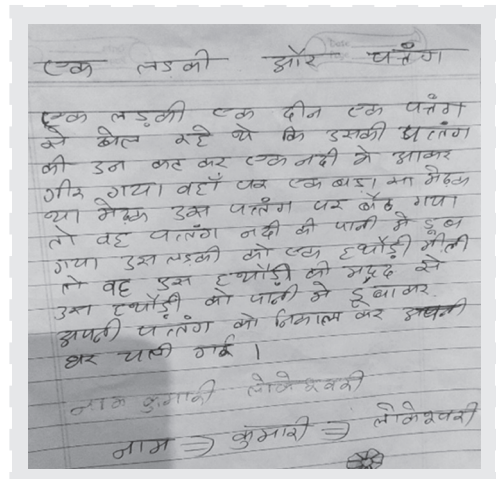 एक लड़की और पतंग
एक लड़की एक दीन एक पतंग
से खेल रहे थे कि उसकी पतंग
की डन कट कर एक नदी मे जाकर
गीर गया वहाँ पर एक बड़ा सा मेढक
था मेढक उस पतंग पर बैठ गया
तो वह पतंग नदी की पानी मे डूब
गया उस लड़की को एक हथौड़ी मीली
तो वह इस हथौड़ी की मद्दद से
उस हथौड़ी को पानी मे डूबा कर
अपनी पतंग को निकाल कर अपनी
घर चली गई ।
नाम कुमारी लोकेश्वरी
नाम ⇒ कुमारी ⇒ लोकेश्वरी